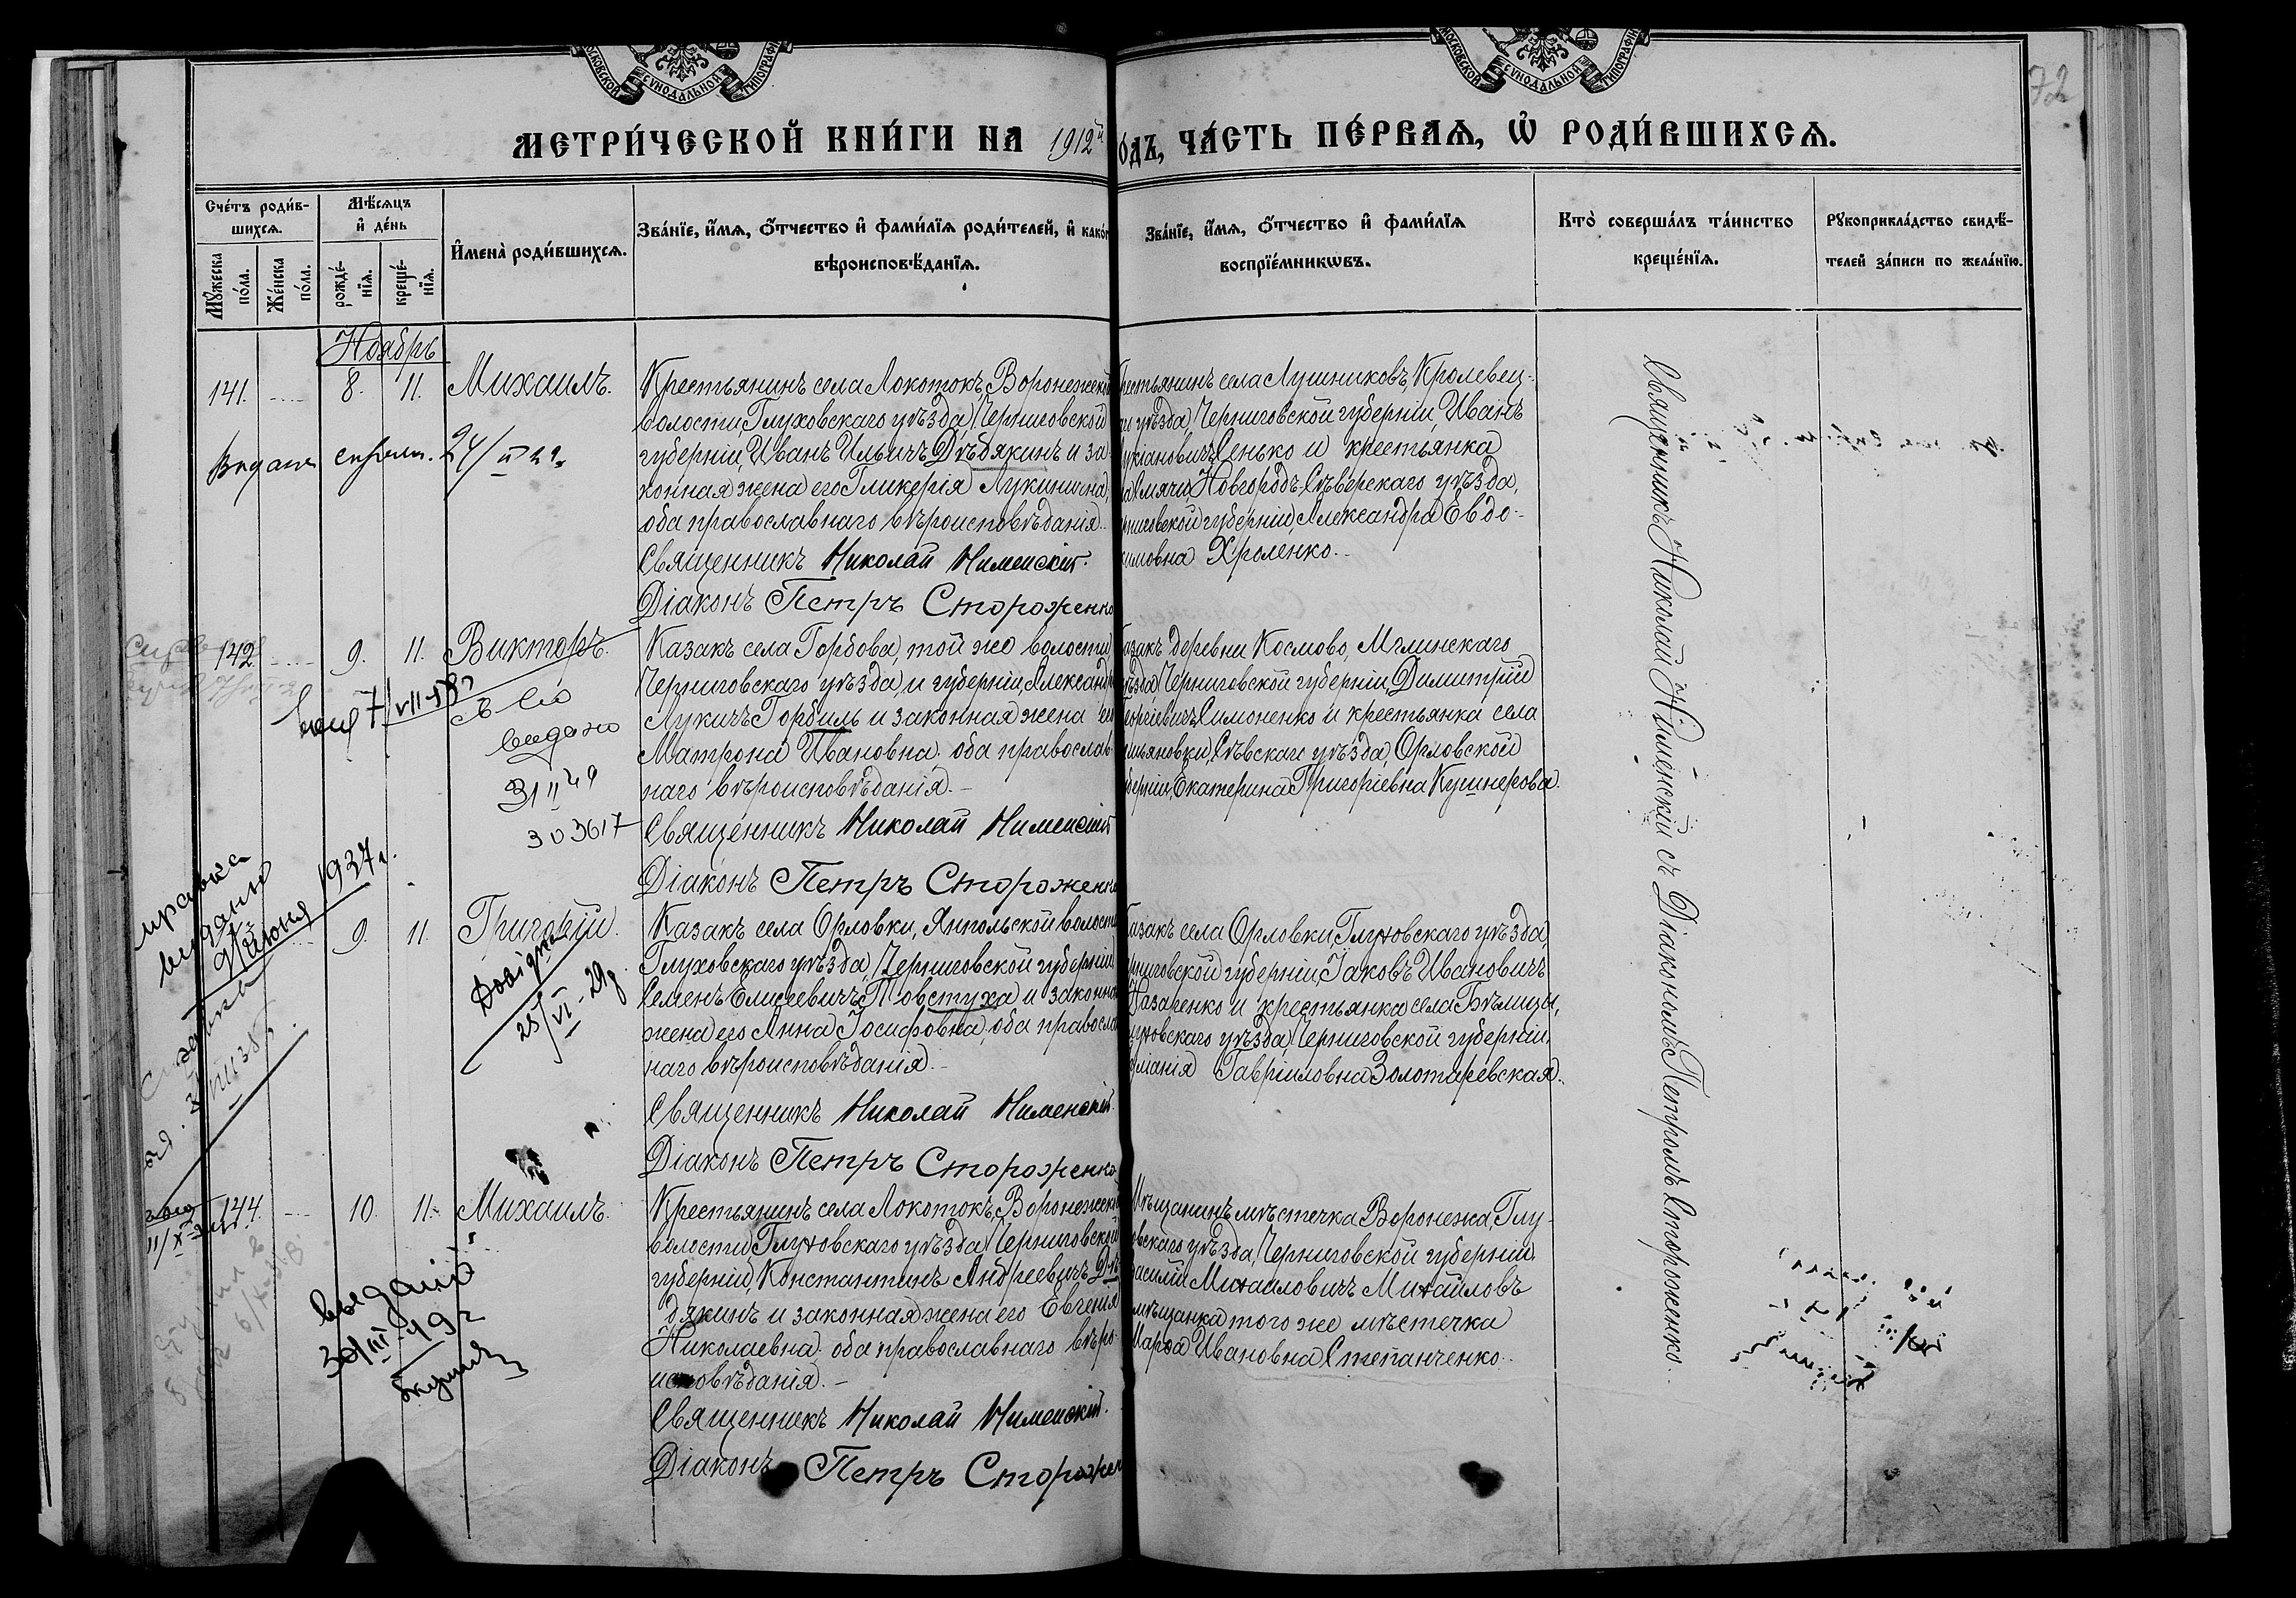 МОСКОВСКОЙ СѴНОДАЛЬНОЙ ТИПОГРАФІИ
МОСКОВСКОЙ СѴНОДАЛЬНОЙ ТИПОГРАФІИ
72
МЕТРИ́ЧЕСКОЙ КНИ́ГИ НА 1912й
о́дъ, ЧА́СТЬ ПЕ́РВАѦ, Ѡ҆ РОДИ́ВШИХСѦ.
Сче́тъ роди́в-
шихсѧ.
Мѣ́сѧцъ
и҆ де́нь
Мꙋ́жеска
по́ла.
Же́нска
по́ла.
рожде́-
нїѧ.
креще́-
нїѧ.
И҆мена̀ роди́вшихсѧ.
Зва́нїе, и҆́мѧ, ѻ҆́тчество и҆ фами́лїѧ роди́телей, и҆ како́г
вѣроисповѣ́данїѧ.
Зва́нїе, и҆́мѧ, ѻ҆́тчество и҆ фами́лїѧ
воспрїе́мникѡвъ.
Кто̀ соверша́лъ та́инство
креще́нїѧ.
Рꙋкоприкла́дство свидѣ́-
телей за́писи по жела́нїю.
Ноябрь
141. 8. 11. Михаилъ.
Крестьянинъ села Локотокъ, Воронежской
волости, Глуховскаго уѣзда, Черниговской
губерніи, Иванъ Ильичъ Дѣдякинъ и за-
конная жена его Гликерія Лукинична,
оба православнаго вѣроисповѣданія.
Священникъ Николай Нименскій.
Діаконъ Петръ Стороженко
рестьянинъ села Лушниковъ, Кролевец-
го уѣзда, Черниговской губерніи, Иванъ
укіановичъ Сенько и крестьянка
а Смячи, Новгородъ-Сѣверскаго уѣзда,
рниговской губерніи, Александра Евдо-
кимовна Хроленко.
142. 9. 11. Викторъ.
выдано
31 II 49
303617
Казакъ села Горбова, той же волости
Черниговскаго уѣзда, и губерніи, Александръ
Лукичъ Горбиль и законная жена его
Матрона Ивановна, оба православ-
наго вѣроисповѣданія.
Священникъ Николай Нименскій
Діаконъ Петръ Стороженко
азакъ деревни Космово, Мглинскаго
уѣзда, Черниговской губерніи, Димитрій
еоргіевичъ Симоненко и крестьянка села
мьяновки, Сѣвскаго уѣзда, Орловской
берніи, Екатерина Григоріевна Кушнерова.
выдано
1937 г.
9. 11. Григорій.
25/VI-29р
Казакъ села Орловки, Янпольской волости
Глуховскаго уѣзда, Черниговской губерніи
Семенъ Елисеевичъ Товстуха и законная
жена его Анна Іосифовна, оба правосла
наго вѣроисповѣданія.
Священникъ Николай Нименскій.
Діаконъ Петръ Стороженко
азакъ села Орловки, Глуховскаго уѣзда,
рниговской губерніи, Іаковъ Ивановичъ
Назаренко и крестьянка села Бѣлицы,
уховскаго уѣзда, Черниговской губерніи,
Гавріиловна Золотаревская.
144. 10. 11. Михаилъ.
выдано
30/III-49 г
Крестьянинъ села Локотокъ, Воронежской
волости, Глуховскаго уѣзда, Черниговской
губерніи, Константинъ Андреевичъ Дѣ-
дякинъ и законная жена его Евгенія
Николаевна, оба православнаго вѣро-
исповѣданія.
Священникъ Николай Нименскій.
Діаконъ Петръ Сторожен
Мѣщанинъ мѣстечка Воронежа, Глу-
овскаго уѣзда, Черниговской губерніи
асилій Михаиловичъ Михайловъ
мѣщанка того же мѣстечка
Марѳа Ивановна Степанченко.
Священникъ Николай Нименскій съ Діакономъ Петромъ Стороженко.